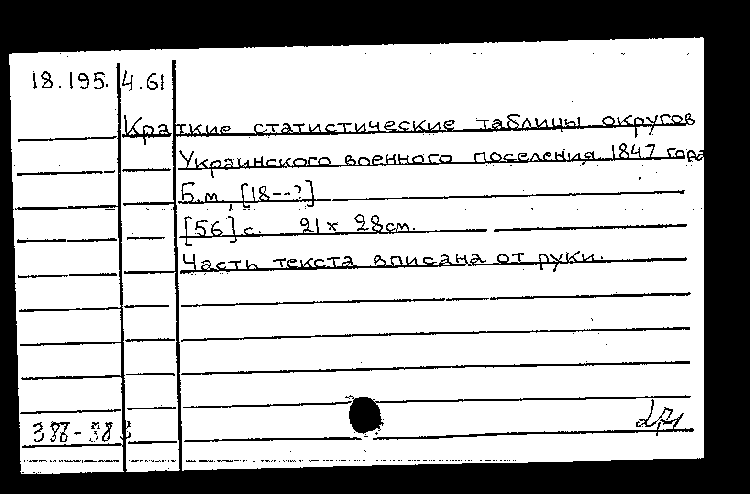 18.195. 4.61
Краткие статистические таблицы округов
Украинского военного поселения 1847 года
Б.м, [18--?]
[56] с. 21 x 28см.
Часть текста вписана от руки.